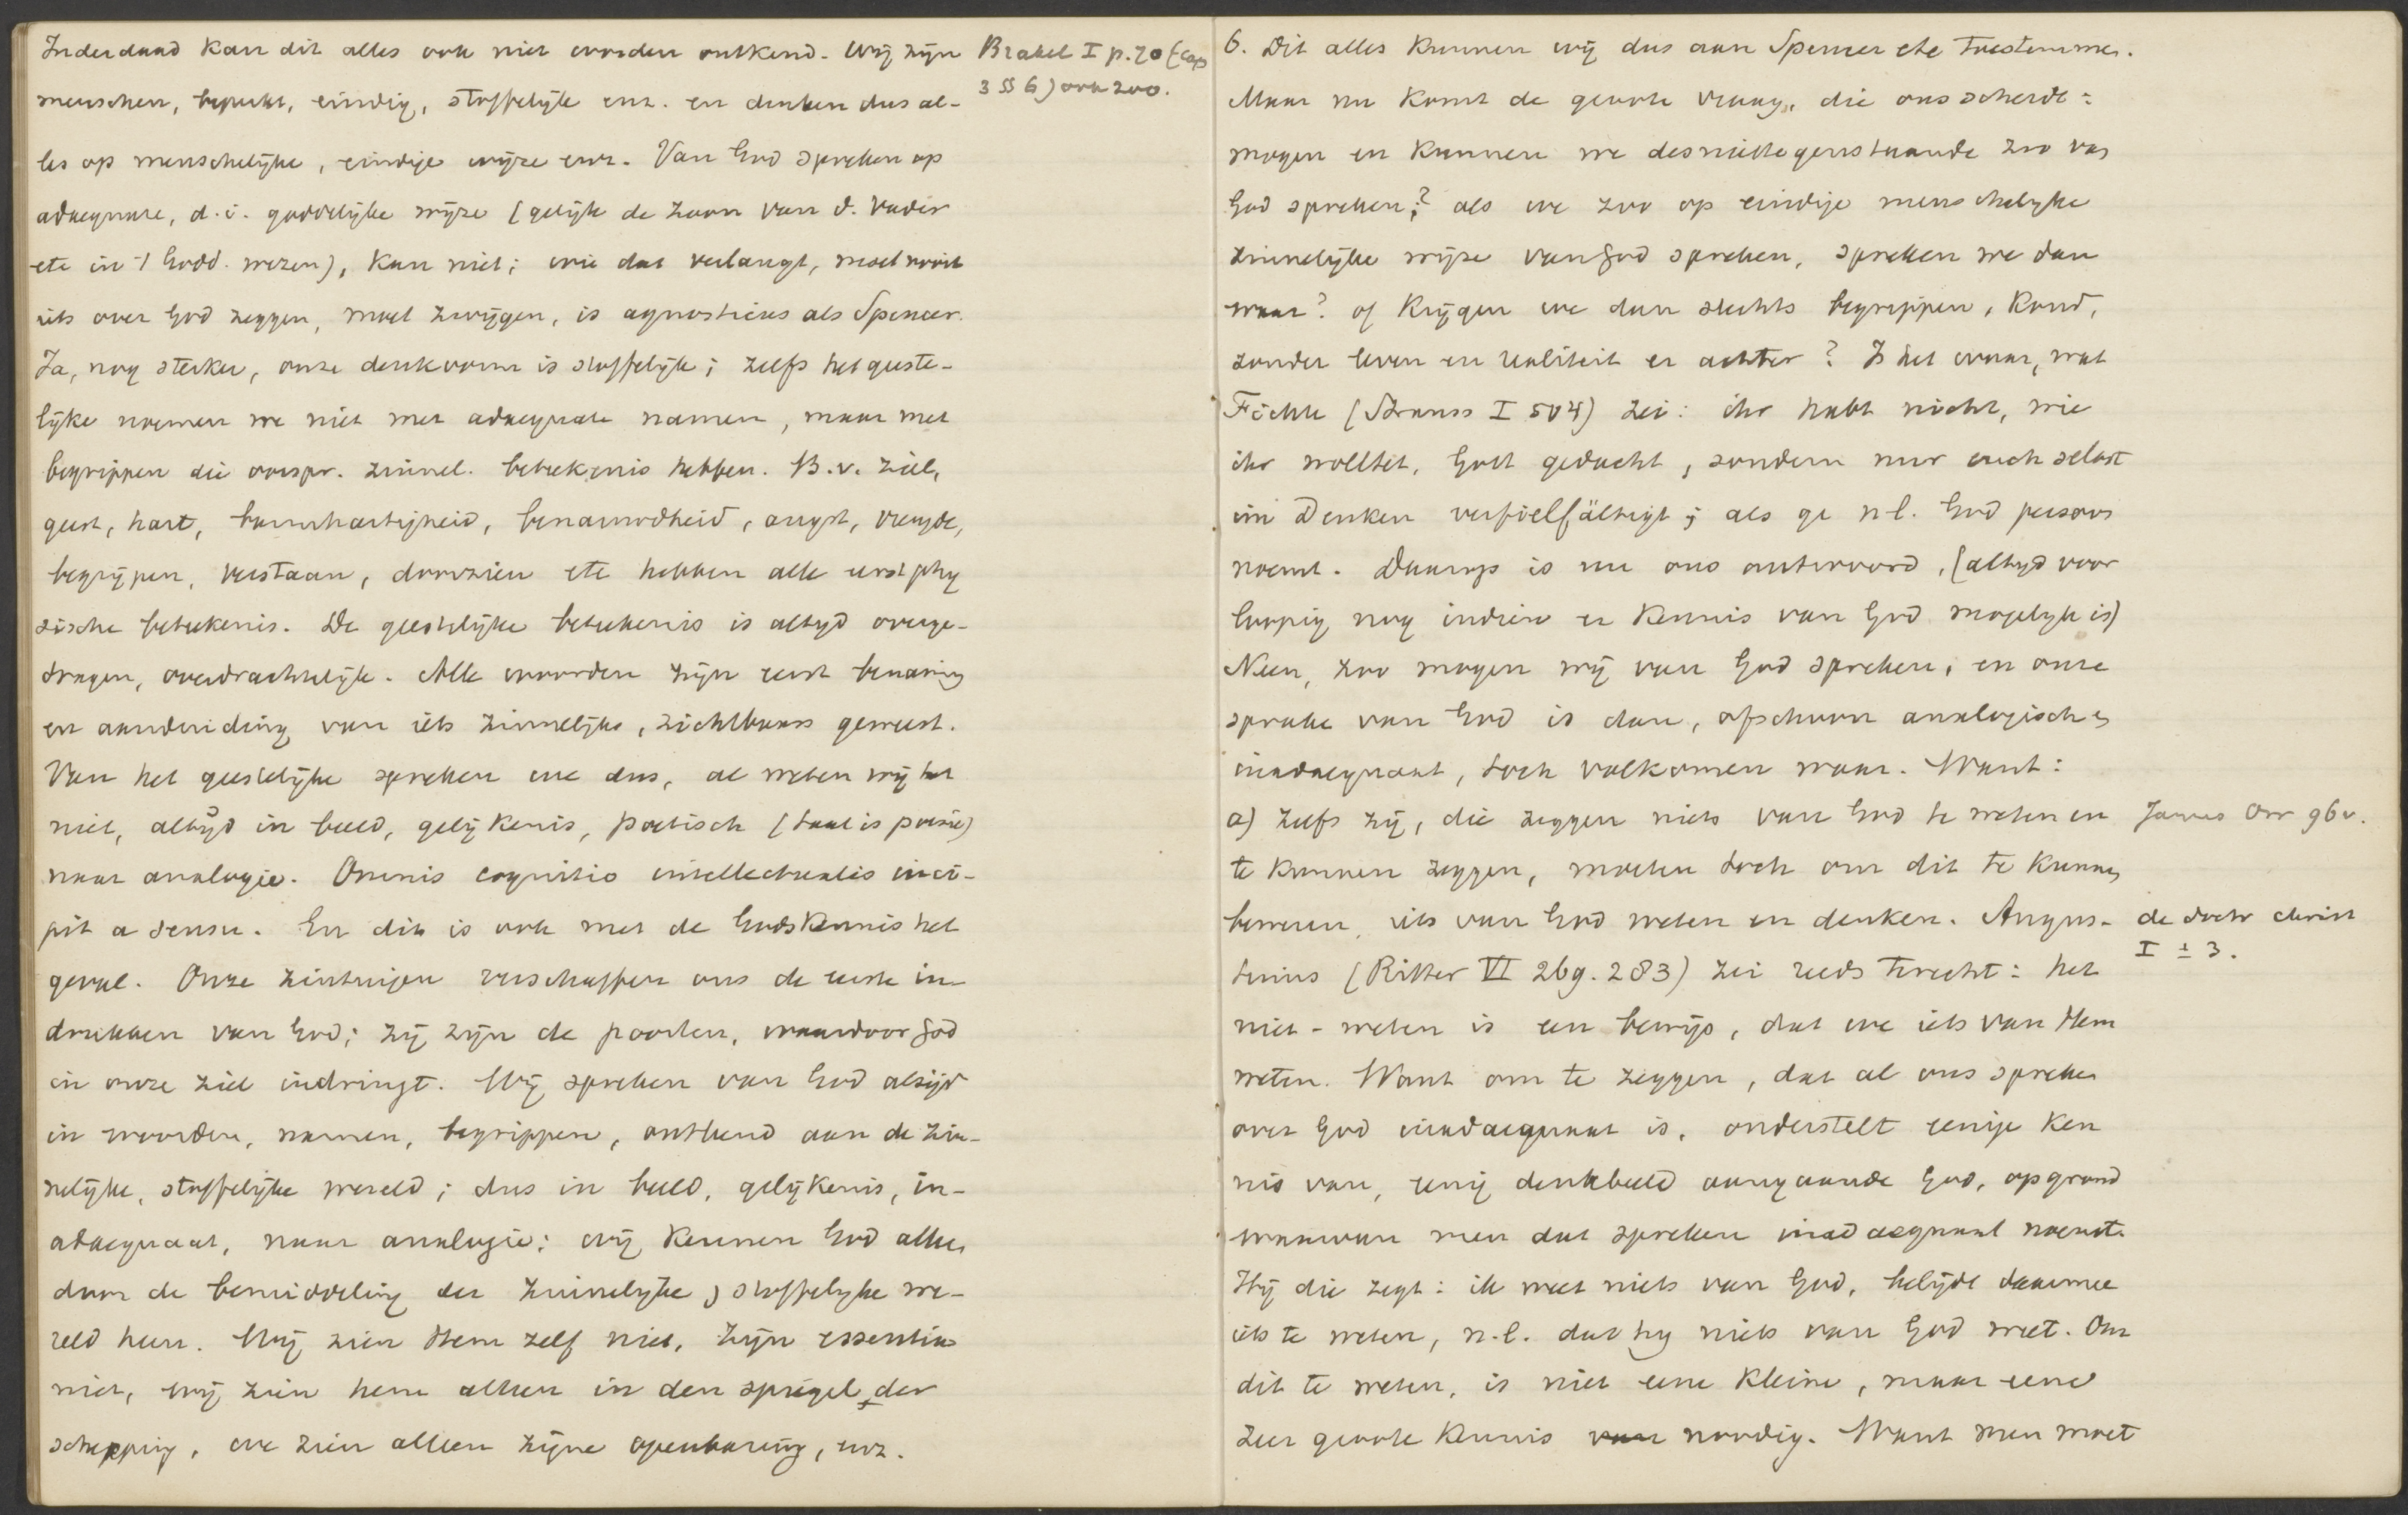 Inderdaad kan dit alles ook niet worden ontkend. Wij zijn
menschen, beperkt, eindig, stoffelijk enz. en denken dus al-
les op menschelijke, eindige wijze enz. Van God spreken op
adaequate, d.i. goddelijke wijze (gelijk de Zoon van d. Vader
etc in 't Godd. wezen), kan niet; wie dat verlangt, moet nooit
iets over God zeggen, moet zwijgen, is agnosticus als Spencer.
Ja, nog sterker, onze denkvorm is stoffelijk; zelfs het geeste-
lijke noemen we niet met adaequate namen, maar met
begrippen die oorspr. zinnel. beteekenis hebben. B.v. ziel,
geest, hart, barmhartigheid, benauwdheid, angst, vreugde,
begrijpen, verstaan, doorzien etc hebben alle eerst phy
sische beteekenis. De geestelijke beteekenis is altijd overge-
dragen, overdrachtelijk. Alle woorden zijn eerst benaming
en aanduiding van iets zinnelijks, zichtbaars geweest.
Van het geestelijke spreken we dus, al weten wij het
niet, altijd in beeld, gelijkenis, poetisch (taal is poesie)
naar analogie. Omnis cognitio intellectualis inci-
pit a sensu. En dit is ook met de Godskennis het
geval. Onze zintuigen verschaffen ons de eerste in-
drukken van God; zij zijn de poorten, waardoor God
in onze ziel indringt. Wij spreken van God altijd
in woorden, namen, begrippen, ontleend aan de zin-
nelijke, stoffelijke wereld; dus in beeld, gelijkenis, in-
adaequaat, naar analogie; wij kennen God alleen
door de bemiddeling der zinnelijke, stoffelijke we-
reld heen. Wij zien Hem zelf niet, Zijn essentia
niet, wij zien hem alleen in den spiegel der
schepping, we zien alleen zijne openbaring, enz.
Brakel I p. 20 (cap
3 §§ 6) ook 200.
6. Dit alles kunnen wij dus aan Spencer etc toestemmen.
Maar nu komt de groote vraag, die ons scheidt:
mogen en kunnen we desniettegenstaande zoo van
God spreken? als we zoo op eindige menschelijke
zinnelijke wijze van God spreken, spreken we dan
waar? of krijgen we dan slechts begrippen, koud,
zonder leven en realiteit er achter? Is het waar, wat
Fichte (Strauss I 504) zei: ihr habt nicht, wie
ihr wolltet, Gott gedacht, sondern nur euch selbst
im Denken verfielfältigt; als ge n.l. God persoon
noemt. Daarop is nu ons antwoord, (altijd voor
loopig nog indien er kennis van God mogelijk is)
Neen, zoo mogen wij van God spreken, en onze
sprake van God is dan, ofschoon analogisch en
inadaequaat, toch volkomen waar. Want:
a) Zelfs zij, die zeggen niets van God te weten en
te kunnen zeggen, moeten toch om dit te kunnen
beweren, iets van God weten en denken. Augus-
tinus (Ritter VI 269. 283) zei reeds terecht: het
niet-weten is een bewijs, dat we iets van Hem
weten. Want om te zeggen, dat al ons spreken
over God inadaequaat is, onderstelt eenige ken
nis van, eenig denkbeeld aangaande God, op grond
waarvan men dat spreken inadaequaat noemt.
Hij die zegt: ik weet niets van God, belijdt daarmee
iets te weten, n.l. dat hij niets van God weet. Om
dit te weten, is niet eene kleine, maar eene
zeer groote kennis noodig. Want men moet
James Orr 96 v.
de doctr christ
I ± 3.